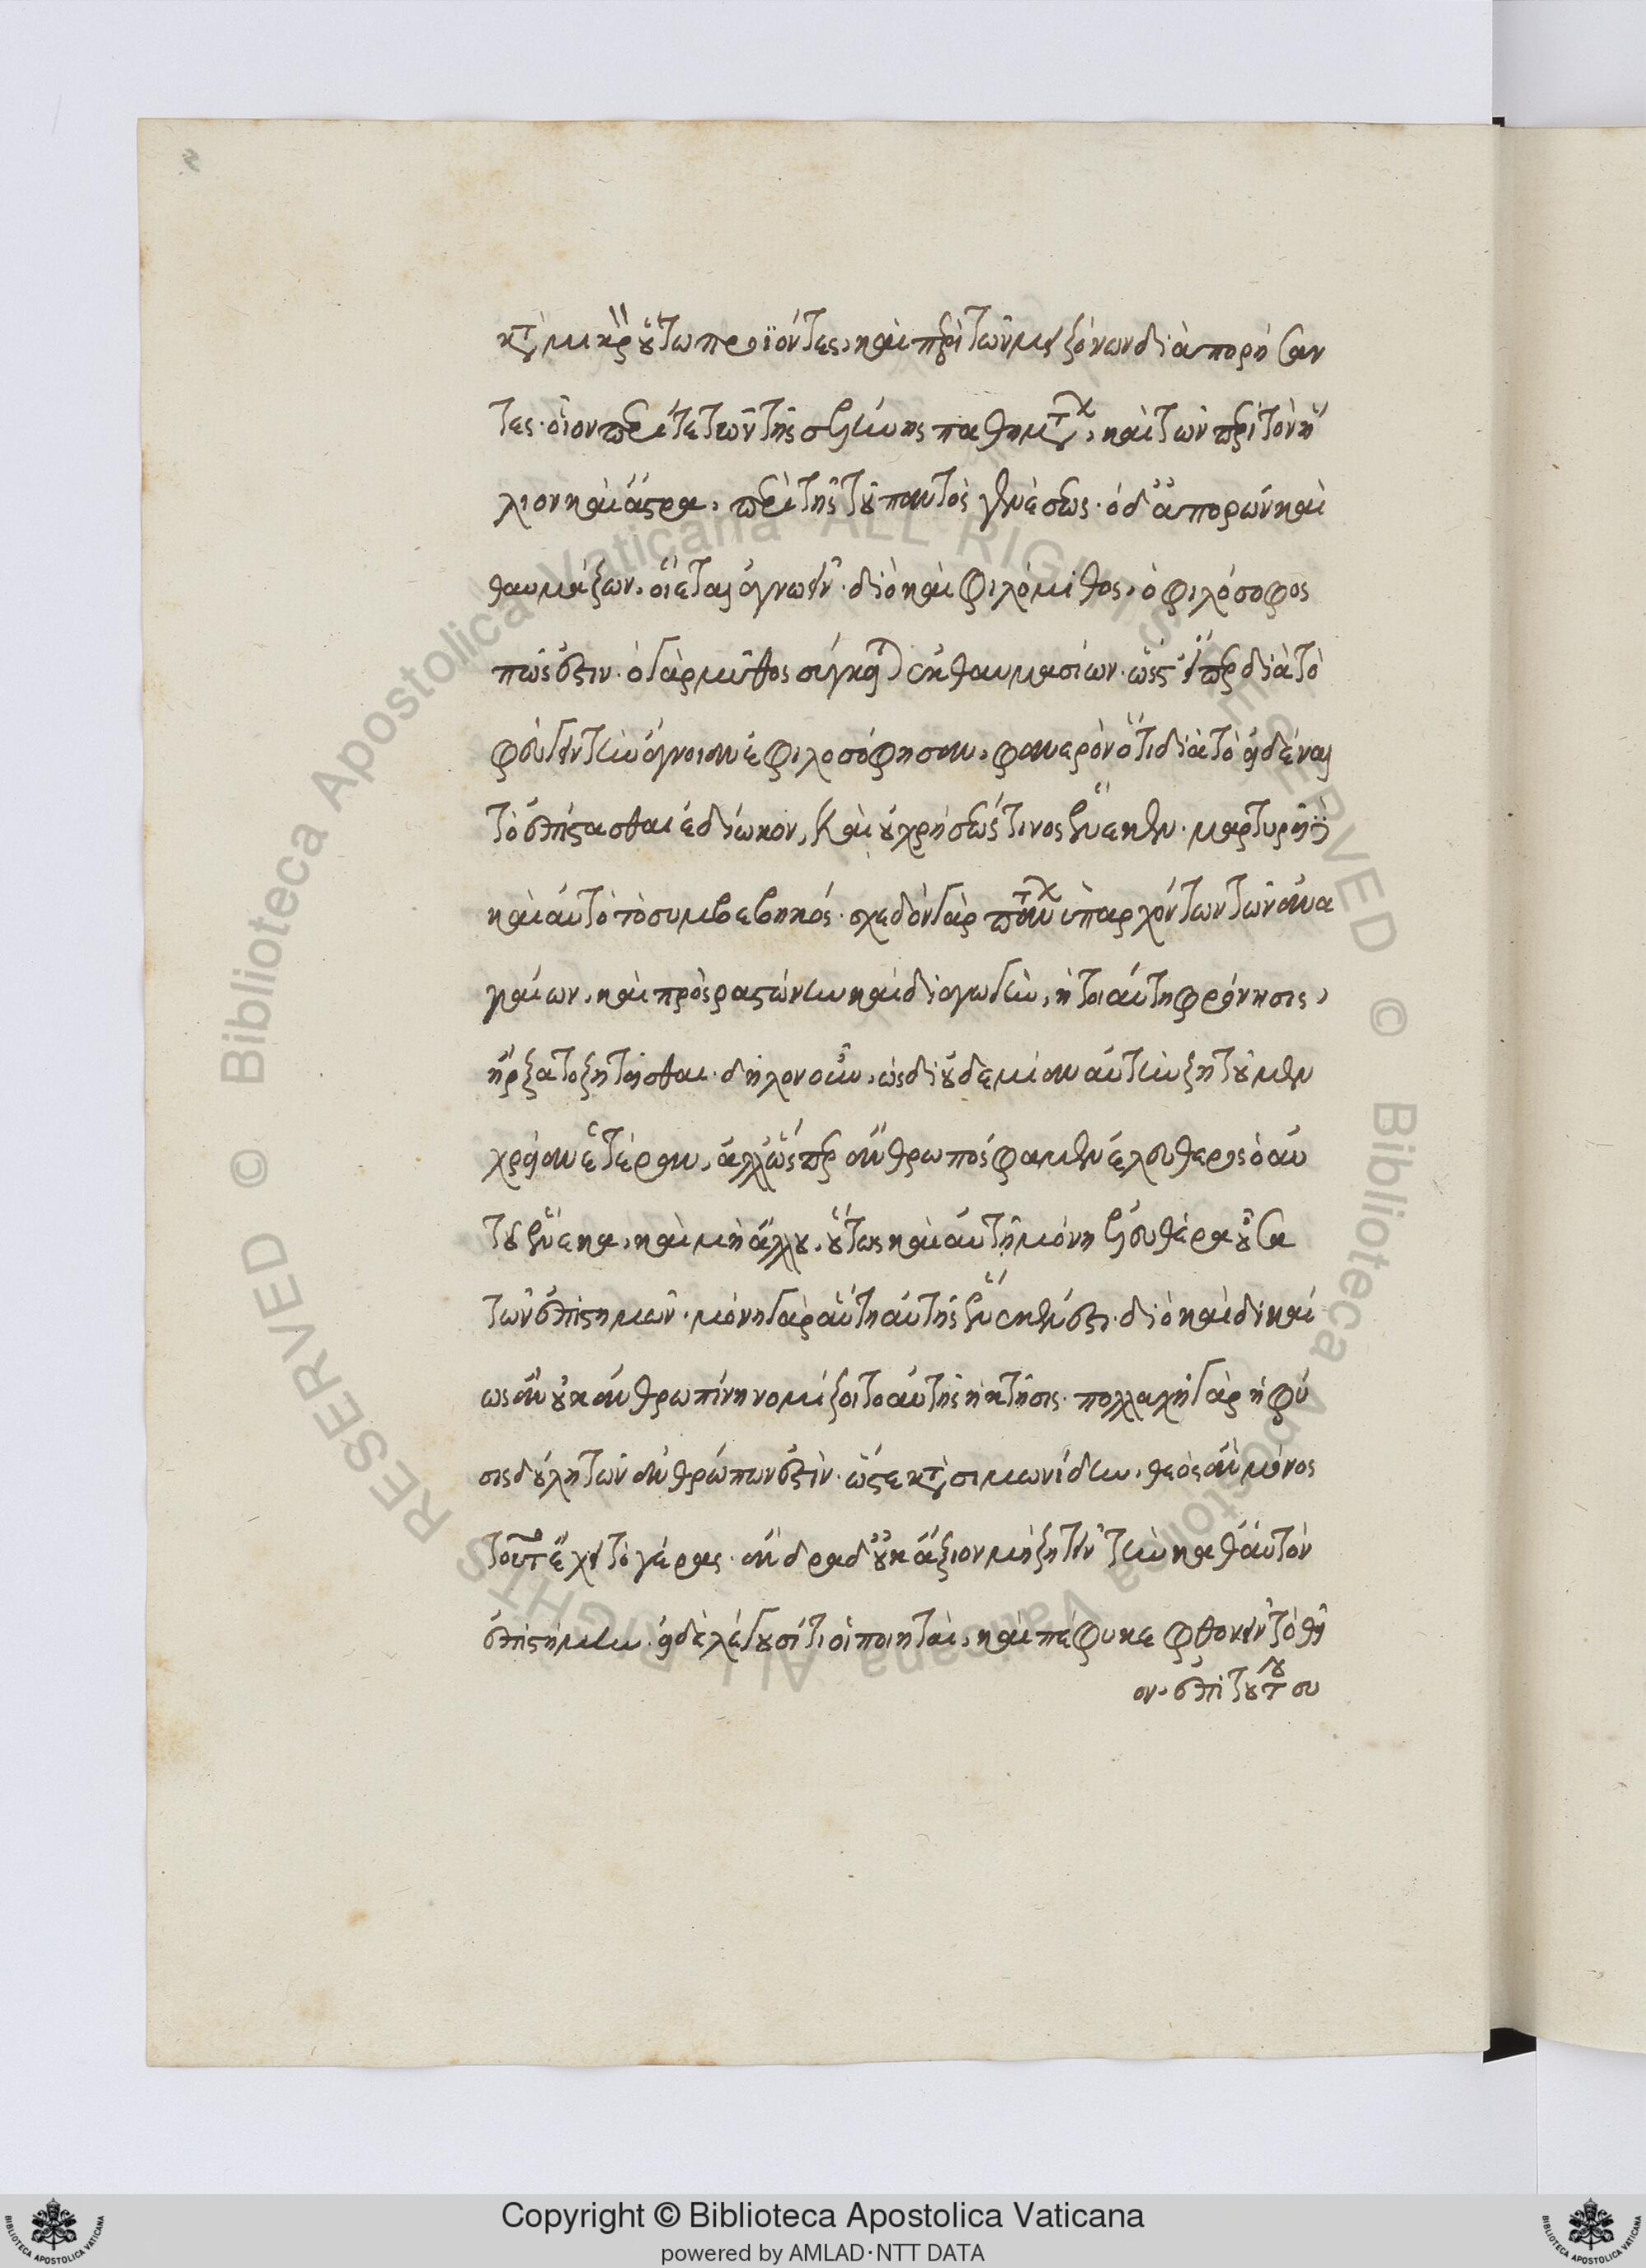 κατὰ μικρὸν οὕτω προϊόντες, καὶ περὶ τῶν μειζόνων διαπορήσαν
τες· οἷον περί τε τῶν τῆς σελήνης παθημάτων, καὶ τῶν περὶ τὸν ἥ
λιον καὶ ἄστρα, περὶ τῆς τοῦ παντὸς γενέσεως· ὁ δ' ἀπορῶν καὶ
θαυμάζων, οἴεται ἀγνοεῖν· διὸ καὶ φιλόμυθος, ὁ φιλόσοφος
πώς ἐστιν· ὁ γὰρ μῦθος σύγκειται ἐκ θαυμασίων· ὥστ' εἴπερ διὰ τὸ
φεύγειν τὴν ἄγνοιαν ἐφιλοσόφησαν, φανερὸν ὅτι διὰ τὸ εἰδέναι
τὸ ἐπίστασθαι ἐδίωκον, καὶ οὐ χρήσεώς τινος ἕνεκεν· μαρτυρεῖ δὲ
καὶ αὐτὸ τὸ συμβεβηκός· σχεδὸν γὰρ πάντων ὑπαρχόντων τῶν ἀνα
γκαίων, καὶ πρὸς ῥαστώνην καὶ διαγωγὴν, ἡ τοιαύτη φρόνησις,
ἤρξατο ζητεῖσθαι· δῆλον οὖν, ὡς δι' οὐδεμίαν αὐτὴν ζητοῦμεν
χρείαν ἑτέραν, ἀλλ' ὥσπερ ἄνθρωπός φαμεν ἐλεύθερος ὁ αὑ
τοῦ ἕνεκα, καὶ μὴ ἄλλου, οὕτως καὶ αὐτὴ μόνη ἐλευθέρα οὖσα
τῶν ἐπιστημῶν· μόνη γὰρ αὕτη αὐτῆς ἕνεκέν ἐστι· διὸ καὶ δικαί
ως ἂν οὐκ ἀνθρωπίνη νομίζοιτο αὐτῆς ἡ κτῆσις· πολλαχῇ γὰρ ἡ φύ
σις δούλη τῶν ἀνθρώπων ἐστίν· ὥστε κατὰ σιμωνίδην, θεὸς ἂν μόνος
τοῦτ' ἔχει τὸ γέρας· ἄνδρα δ' οὐκ ἄξιον μὴ ζητεῖν τὴν καθ' αὑτὸν
ἐπιστήμην· εἰ δὲ λέγουσί τι οἱ ποιηταὶ, καὶ πέφυκε φθονεῖν τὸ θεῖ
ον· ἐπὶ τούτου συ
Copyright © Biblioteca Apostolica Vaticana
powered by AMLAD·NTT DATA